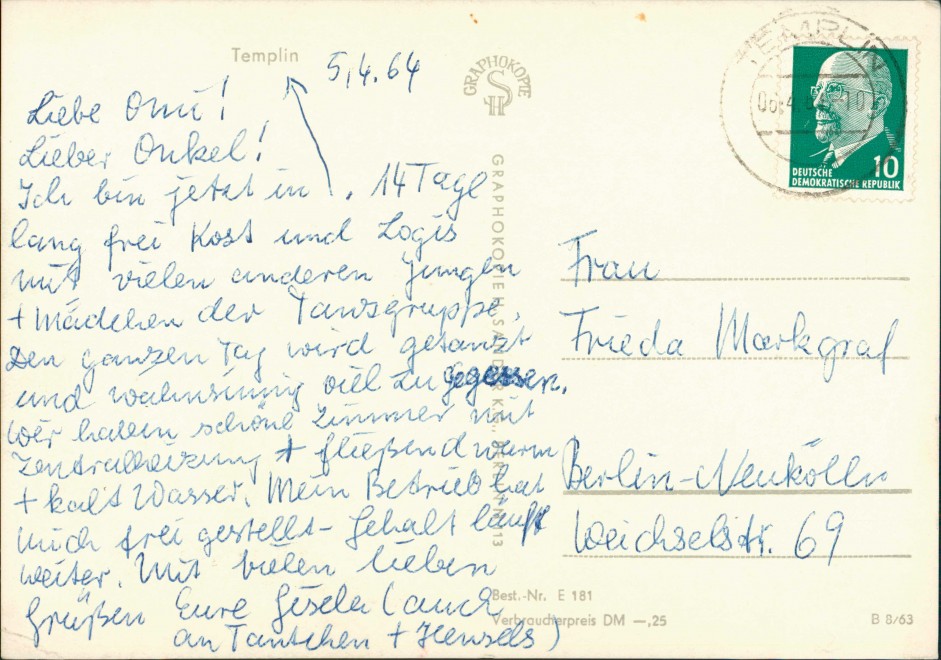 Templin
5.4.64
Liebe Omi!
Lieber Onkel!
Ich bin jetzt in . 14 Tage
lang frei Kost und Logis
mit vielen anderen Jungen
+ Mädchen der Tanzgruppe.
Den ganzen Tag wird getanzt
und wahnsinnig viel zu gegessen.
Wir haben schöne Zimmer mit
Zentralheizung + fließend warm
+ kalt Wasser. Mein Betrieb hat
mich frei gestellt - Gehalt läuft
weiter. Mit vielen lieben
Grüßen Eure Gisela (auch
an Tantchen + Hensels)
GRAPHOKOPIE
SH
GRAPHOKOPIE H. SANDER KG., BERLIN N 113
TEMPLIN
06.4.64-10
DEUTSCHE
DEMOKRATISCHE REPUBLIK
10
Frau
Frieda Markgraf
Berlin-Neukölln
Weichselstr. 69
Best.-Nr. E 181
Verbraucherpreis DM —,25
B 8/63